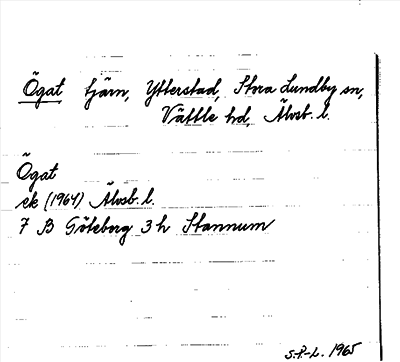 Ögat tjärn, Ytterstad, Stora Lundby sn,
Vättle hd, Älvsb. l.
Ögat
ek (1964) Älvsb. l.
7 B Göteborg 3 h Stannum
S.P-L. 1965